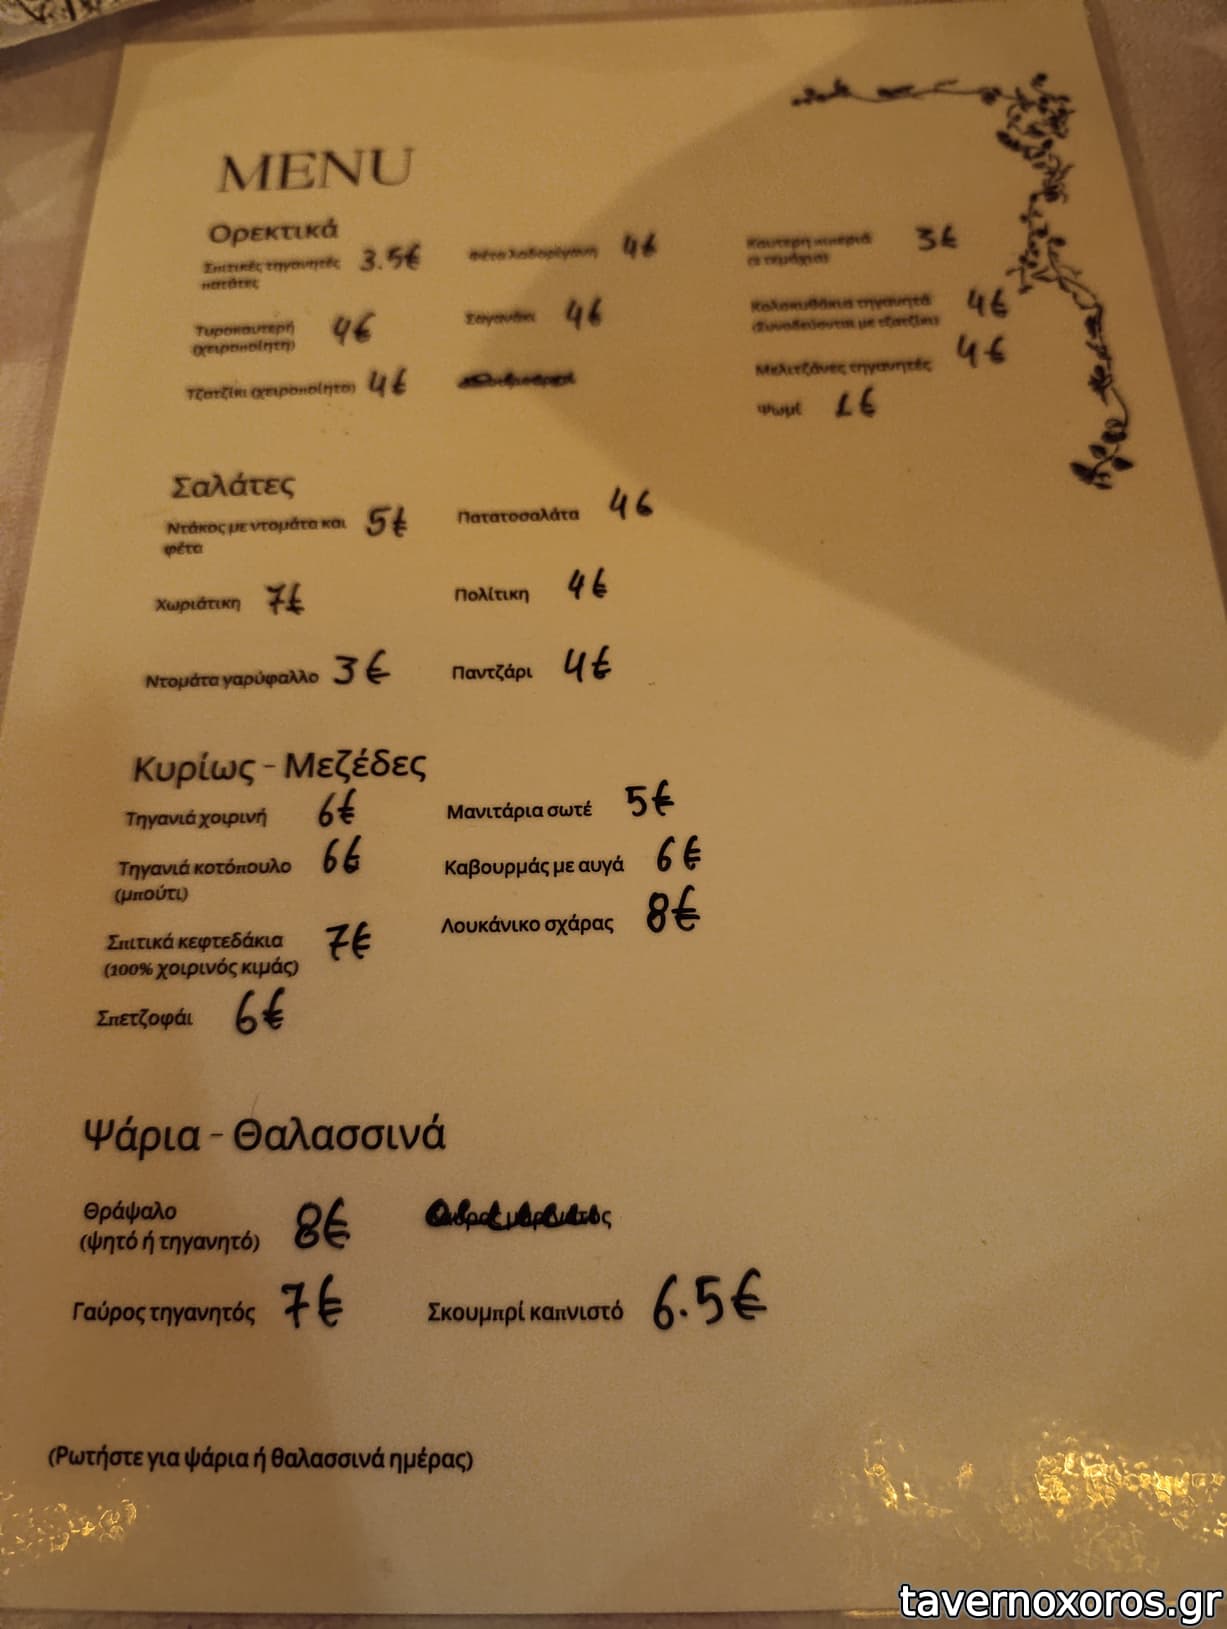 MENU
Ορεκτικά
Σπιτικές τηγανητές πατάτες 3.5€
Τυροκαυτερή (χειροποίητη) 4€
Τζατζίκι (χειροποίητο) 4€
Φέτα λαδορίγανη 4€
Σαγανάκι 4€
Καυτερή πιπεριά 3€
Κολοκυθάκια τηγανητά (Συνοδεύονται με τζατζίκι) 4€
Μελιτζάνες τηγανητές 4€
Ψωμί 1€
Σαλάτες
Ντάκος με ντομάτα και φέτα 5€
Χωριάτικη 7€
Ντομάτα γαρύφαλλο 3€
Πατατοσαλάτα 4€
Πολίτικη 4€
Παντζάρι 4€
Κυρίως - Μεζέδες
Τηγανιά χοιρινή 6€
Τηγανιά κοτόπουλο (μπούτι) 6€
Σπιτικά κεφτεδάκια (100% χοιρινός κιμάς) 7€
Σπετζοφάι 6€
Μανιτάρια σωτέ 5€
Καβουρμάς με αυγά 6€
Λουκάνικο σχάρας 8€
Ψάρια - Θαλασσινά
Θράψαλο (ψητό ή τηγανητό) 8€
Γαύρος τηγανητός 7€
Σκουμπρί καπνιστό 6.5€
(Ρωτήστε για ψάρια ή θαλασσινά ημέρας)
tavernoxoros.gr